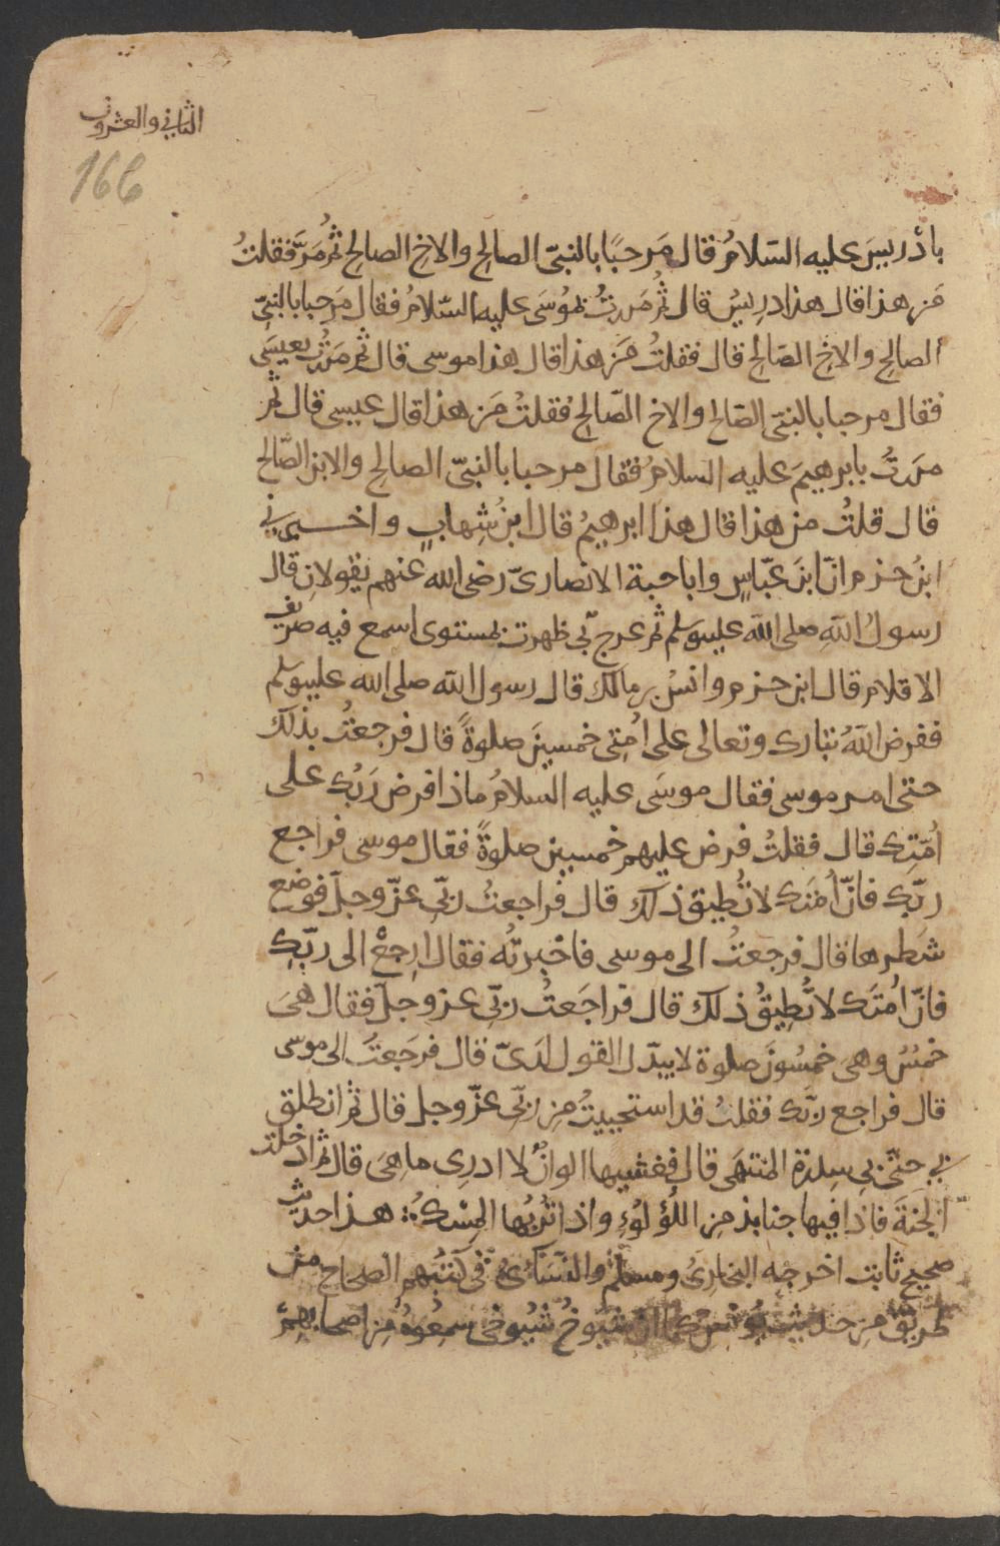 الثاني والعشرون
166
بإدريسَ عليه السّلامُ قال مَرحبًا بالنبىّ الصالح والاخ الصالح ثمُ مَرَّ فقلتُ
مَن هذا قال هذا ادريسُ قال ثُم مَررتُ بمُوسَى عليه السّلامُ فقال مَرحبا بالنبىّ
الصالح والاخ الصَالح قال فقلتُ مَن هذا قال هذا موسى قال ثم مَررتُ بعيسَى
فقال مرحبا بالنبىّ الصّالح والاخ الصّالح فقلتُ مَن هذا قال عيسى قال ثم
مرَرتُ بابرهيمَ عليه السلامُ فقال مرحبا بالنبىّ الصالح والابن الصّالح
قال قلتُ من هذا قال هذا ابرهيمُ قال ابنُ شِهابٍ واخبرني
ابنُ حزم انّ ابنَ عبّاسٍ وابا حبة الانصارىّ رضى الله عنهم يقولانِ قال
رسولُ اللهِ صلى الله عليه وسلم ثم عرج بّى ظهرت لمستوى اسمع فيه صريف
الاقلام قال ابن حزم وانسُ بن مالك قال رسول الله صلى الله عليه وسلم
ففرض اللهُ تبارك وتعالى على امتِى خمسينَ صلوةً قال فرجعتُ بذلك
حتى امر موسى فقال موسَى عليه السلامُ ماذا فرض رَبُّك على
اُمّتِك قال فقلتُ فرض عليهم خمسين صلوةً فقال موسى فراجع
ربّك فانّ اُمّتَك لا تُطيق ذلك قال فراجعتُ ربّى عزّ وجلّ فوضع
شَطرها قال فرجعتُ الى موسى فاخبرتُه فقال ارجعْ الى ربّك
فانّ اُمّتَك لا تُطِيقُ ذلك قال فراجَعتُ ربّى عز وجلّ فقال هىَ
خمسٌ وهىَ خمسُونَ صلوة لا يبدّل القول لَدَىّ قال فرجَعتُ الى موسى
قال فراجع ربَّك فقلتُ قد استحييتُ مِن ربّى عزّ وجل قال ثم انطلق
بى حتّى بى سِدرَةَ المنتهَى قال فغشيها الوانٌ لا ادرى ما هىَ قال ثم ادخلتُ
الجنّةَ فاذا فيها جنابذ مِن اللؤلؤ واذا تُربُها المِسْكُ هذا حديث
صحيح ثابت اخرجه البخارىُ ومسلم والنّسَائىُ فى كُتُبهم الصحاح من
طريق مِن حديث يُونسَ شيُوخُ شيُوخى سمِعُوهُ مِن اصحابهِمْ